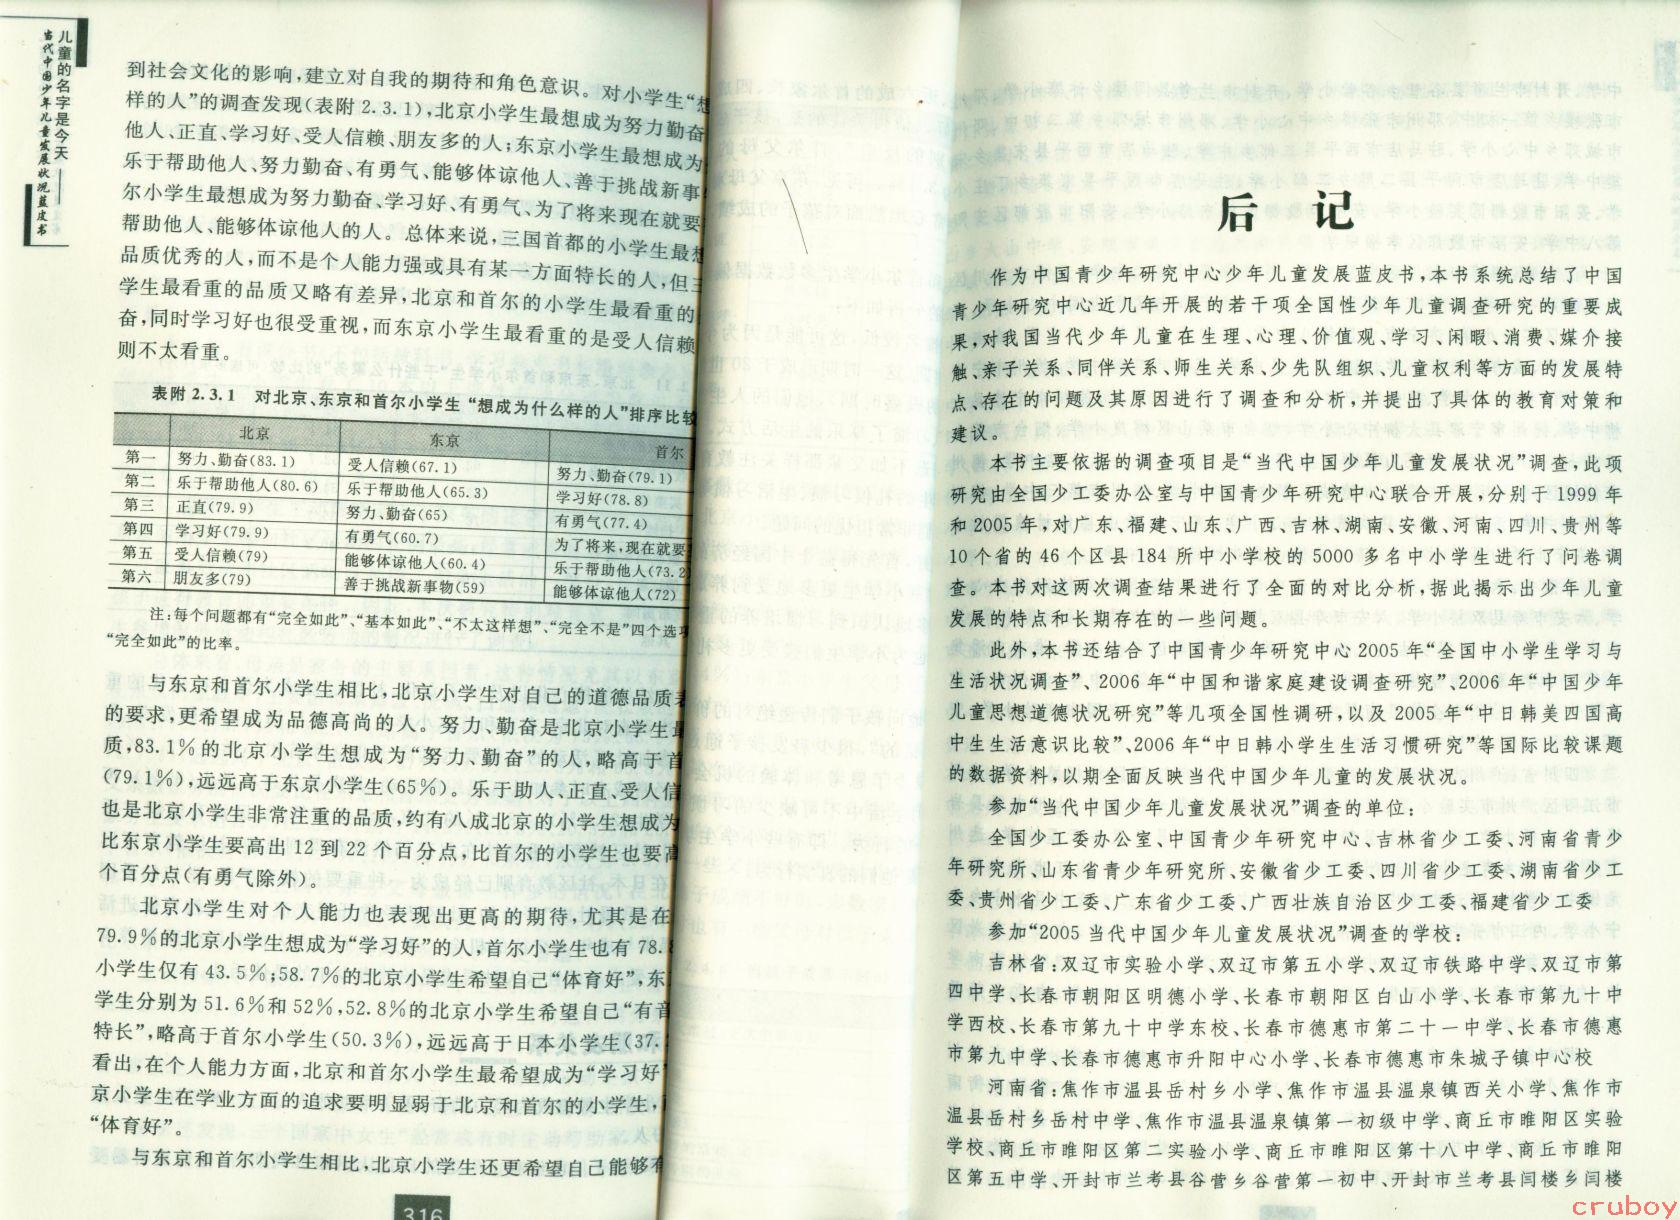 儿童的名字是今天
当代中国少年儿童发展状况蓝皮书
到社会文化的影响,建立对自我的期待和角色意识。对小学生“想
样的人”的调查发现(表附 2.3.1),北京小学生最想成为努力勤奋
他人、正直、学习好、受人信赖、朋友多的人;东京小学生最想成为
乐于帮助他人、努力勤奋、有勇气、能够体谅他人、善于挑战新事
尔小学生最想成为努力勤奋、学习好、有勇气、为了将来现在就要
帮助他人、能够体谅他人的人。总体来说,三国首都的小学生最想
品质优秀的人,而不是个人能力强或具有某一方面特长的人,但三
学生最看重的品质又略有差异,北京和首尔的小学生最看重的
奋,同时学习好也很受重视,而东京小学生最看重的是受人信赖
则不太看重。
表附 2.3.1 对北京、东京和首尔小学生“想成为什么样的人”排序比较
北京 东京 首尔
第一 努力、勤奋(83.1) 受人信赖(67.1) 努力、勤奋(79.1)
第二 乐于帮助他人(80.6) 乐于帮助他人(65.3) 学习好(78.8)
第三 正直(79.9) 努力、勤奋(65) 有勇气(77.4)
第四 学习好(79.9) 有勇气(60.7) 为了将来,现在就要
第五 受人信赖(79) 能够体谅他人(60.4) 乐于帮助他人(73.2
第六 朋友多(79) 善于挑战新事物(59) 能够体谅他人(72)
注:每个问题都有“完全如此”、“基本如此”、“不太这样想”、“完全不是”四个选项
“完全如此”的比率。
与东京和首尔小学生相比,北京小学生对自己的道德品质表
的要求,更希望成为品德高尚的人。努力、勤奋是北京小学生最
质,83.1%的北京小学生想成为“努力、勤奋”的人,略高于首
(79.1%),远远高于东京小学生(65%)。乐于助人、正直、受人信
也是北京小学生非常注重的品质,约有八成北京的小学生想成为
比东京小学生要高出12到22个百分点,比首尔的小学生也要高
个百分点(有勇气除外)。
北京小学生对个人能力也表现出更高的期待,尤其是在
79.9%的北京小学生想成为“学习好”的人,首尔小学生也有78.8
小学生仅有43.5%;58.7%的北京小学生希望自己“体育好”,东
学生分别为51.6%和52%,52.8%的北京小学生希望自己“有音
特长”,略高于首尔小学生(50.3%),远远高于日本小学生(37.
看出,在个人能力方面,北京和首尔小学生最希望成为“学习好”
京小学生在学业方面的追求要明显弱于北京和首尔的小学生,
“体育好”。
与东京和首尔小学生相比,北京小学生还更希望自己能够有
316
后 记
作为中国青少年研究中心少年儿童发展蓝皮书,本书系统总结了中国
青少年研究中心近几年开展的若干项全国性少年儿童调查研究的重要成
果,对我国当代少年儿童在生理、心理、价值观、学习、闲暇、消费、媒介接
触、亲子关系、同伴关系、师生关系、少先队组织、儿童权利等方面的发展特
点、存在的问题及其原因进行了调查和分析,并提出了具体的教育对策和
建议。
本书主要依据的调查项目是“当代中国少年儿童发展状况”调查,此项
研究由全国少工委办公室与中国青少年研究中心联合开展,分别于1999年
和2005年,对广东、福建、山东、广西、吉林、湖南、安徽、河南、四川、贵州等
10个省的46个区县184所中小学校的5000多名中小学生进行了问卷调
查。本书对这两次调查结果进行了全面的对比分析,据此揭示出少年儿童
发展的特点和长期存在的一些问题。
此外,本书还结合了中国青少年研究中心2005年“全国中小学生学习与
生活状况调查”、2006年“中国和谐家庭建设调查研究”、2006年“中国少年
儿童思想道德状况研究”等几项全国性调研,以及2005年“中日韩美四国高
中生生活意识比较”、2006年“中日韩小学生生活习惯研究”等国际比较课题
的数据资料,以期全面反映当代中国少年儿童的发展状况。
参加“当代中国少年儿童发展状况”调查的单位:
全国少工委办公室、中国青少年研究中心、吉林省少工委、河南省青少
年研究所、山东省青少年研究所、安徽省少工委、四川省少工委、湖南省少工
委、贵州省少工委、广东省少工委、广西壮族自治区少工委、福建省少工委
参加“2005当代中国少年儿童发展状况”调查的学校:
吉林省:双辽市实验小学、双辽市第五小学、双辽市铁路中学、双辽市第
四中学、长春市朝阳区明德小学、长春市朝阳区白山小学、长春市第九十中
学西校、长春市第九十中学东校、长春市德惠市第二十一中学、长春市德惠
市第九中学、长春市德惠市升阳中心小学、长春市德惠市朱城子镇中心校
河南省:焦作市温县岳村乡小学、焦作市温县温泉镇西关小学、焦作市
温县岳村乡岳村中学、焦作市温县温泉镇第一初级中学、商丘市睢阳区实验
学校、商丘市睢阳区第二实验小学、商丘市睢阳区第十八中学、商丘市睢阳
区第五中学、开封市兰考县谷营乡谷营第一初中、开封市兰考县闫楼乡闫楼
cruboy